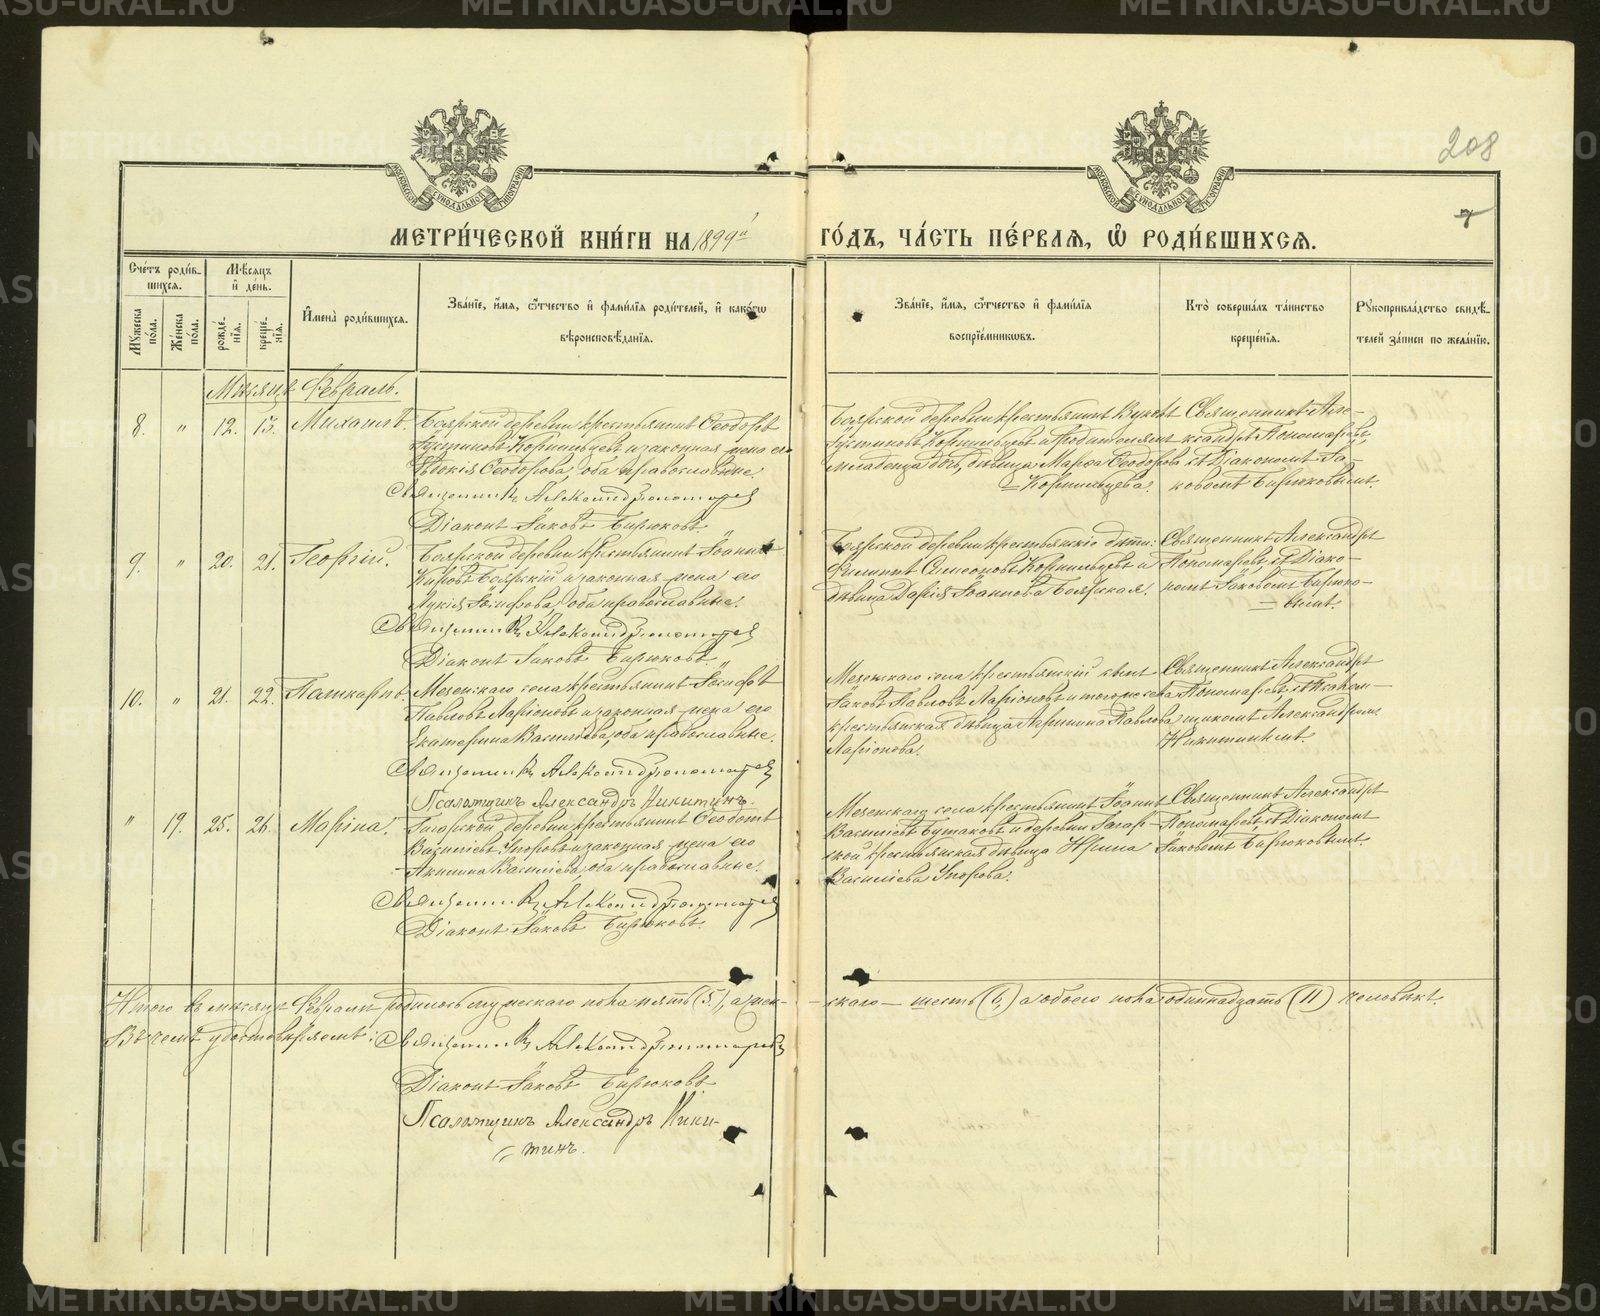 METRIKI.GASO-URAL.RU
208
7
МЕТРИ́ЧЕСКОЙ КНИ́ГИ НА 1899й ГО́ДЪ, ЧА́СТЬ ПЕ́РВАѦ, Ѽ РОДИ́ВШИХСѦ.
Сче́тъ роди́вшихся.
Мѣ́сяцъ и҆ де́нь.
Му́жеска по́ла.
Же́нска по́ла.
рожде́нїѧ.
креще́нїѧ.
И҆мена̀ роди́вшихсѧ.
Зва́нїе, и҆́мѧ, ѻ҆́тчество и҆ фами́лїѧ роди́телей, и҆ како́гѡ
вѣроисповѣ́данїѧ.
Зва́нїе, и҆́мѧ, ѻ҆́тчество и҆ фами́лїѧ
воспрїе́мникѡвъ.
Кто̀ соверша́лъ та́инство
креще́нїѧ.
Рꙋкоприкла́дство свидѣ́-
телей за́писи по жела́нїю.
Мѣсяцъ Февраль.
8. " 12. 13. Михаилъ.
Боярской деревни крестьянинъ Ѳеодоръ
Іустиновъ Корнильцевъ и законная жена его
Евдокія Ѳеодорова, оба православные.
Священникъ Александръ Пономаревъ
Діаконъ Іаковъ Бирюковъ.
Боярской деревни крестьянинъ
Іустиновъ Корнильцевъ и родителямъ
младенца дочь, дѣвица Марѳа Ѳеодорова
Корнильцева.
Священникъ Але-
ксандръ Пономаревъ,
съ Діакономъ Іа-
ковомъ Бирюковымъ.
9. " 20. 21. Георгій.
Боярской деревни крестьянинъ Іоаннъ
Кировъ Боярскій и законная жена его
Лукія Іосифова, оба православные.
Священникъ Александръ Пономаревъ
Діаконъ Іаковъ Бирюковъ.
Боярской деревни крестьянскіе дѣти:
Филиппъ Симеоновъ Корнильцевъ и
дѣвица Дарія Іоаннова Боярская.
Священникъ Александръ
Пономаревъ, съ Діако-
номъ Іаковомъ Бирюко-
вымъ.
10. " 21. 22. Поликарпъ.
Мезенскаго села крестьянинъ Іосифъ
Павловъ Ларіоновъ и законная жена его
Екатерина Васильева, оба православные.
Священникъ Александръ Пономаревъ
Псаломщикъ Александръ Никитинъ.
Мезенскаго села крестьянскій сынъ
Іаковъ Павловъ Ларіоновъ и того же села
крестьянская дѣвица Павлова
Ларіонова.
Священникъ Александръ
Пономаревъ, съ Псалом-
щикомъ Александромъ
Никитинымъ.
" 19. 25. 26. Марина.
Гагарской деревни крестьянинъ Ѳеодотъ
Васильевъ Упоровъ и законная жена его
Акилина Васильева, оба православные.
Священникъ Александръ Пономаревъ
Діаконъ Іаковъ Бирюковъ.
Мезенскаго села крестьянинъ Іоаннъ
Василіевъ Бутаковъ и деревни Гагар-
ской крестьянская дѣвица Ирина
Василіева Упорова.
Священникъ Александръ
Пономаревъ, съ Діакономъ
Іаковомъ Бирюковымъ.
Итого въ мѣсяцѣ Февралѣ родилось мужескаго пола пять (5), а жен-
скаго — шесть (6) а обоего пола одиннадцать (11) человѣкъ.
Въ чемъ удостовѣряемъ: Священникъ Александръ Пономаревъ
Діаконъ Іаковъ Бирюковъ
Псаломщикъ Александръ Ники-
тинъ.